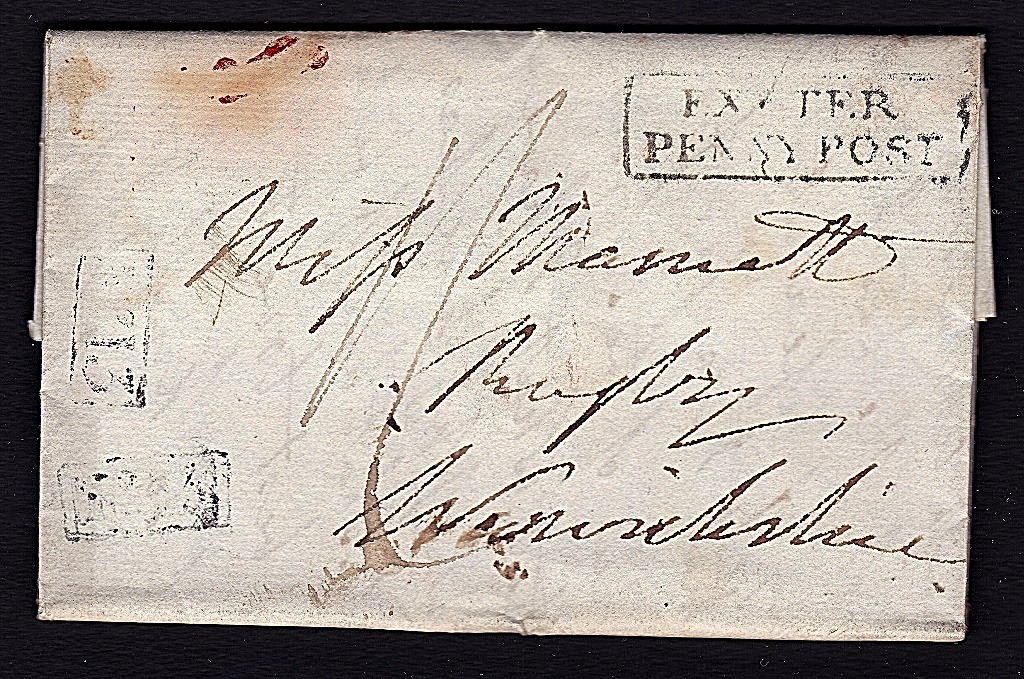 EXETER
PENNY POST
Miss Marriott
Rugby
Warwickshire